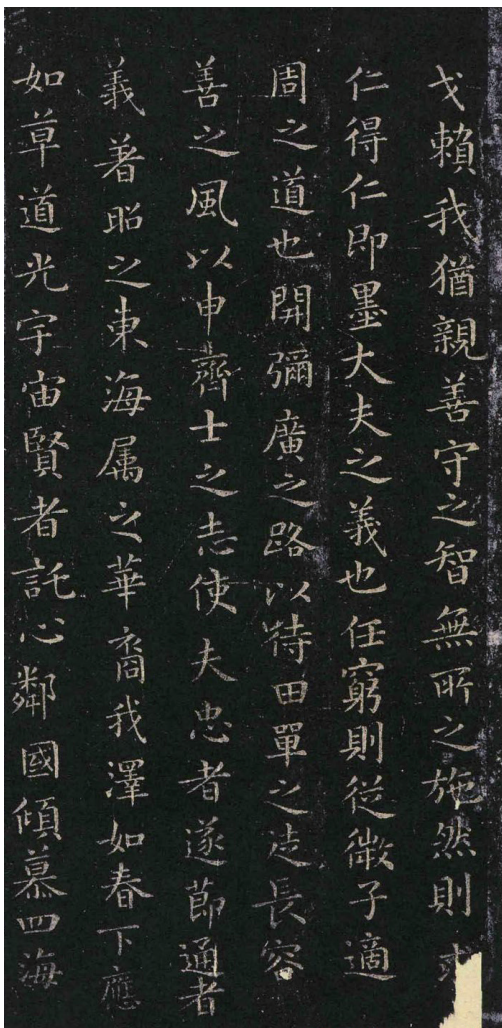 戈賴我猶親善守之智無所之施然則求
仁得仁即墨大夫之義也任窮則從微子適
周之道也開彌廣之路以待田單之徒長容
善之風以申齊士之志使夫忠者遂節通者
義著昭之東海属之華裔我澤如春下應
如草道光宇宙賢者託心鄰國傾慕四海